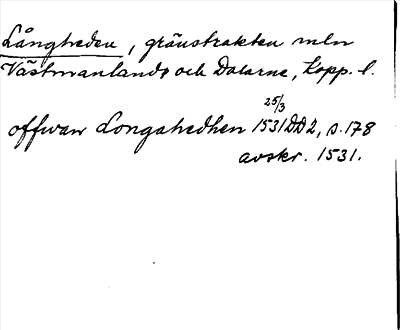 Långheden, gränstrakten mln
Västmanlands och Dalarne, Kopp. l.
25/3
offwan Longahedhen 1531 DD 2, s. 178
avskr. 1531.